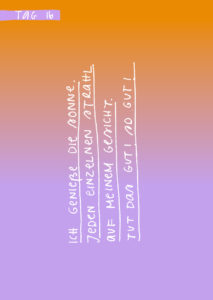 TAG 16
ICH GENIEßE DIE SONNE.
JEDEN EINZELNEN STRAHL
AUF MEINEM GESICHT.
TUT DAS GUT! SO GUT!